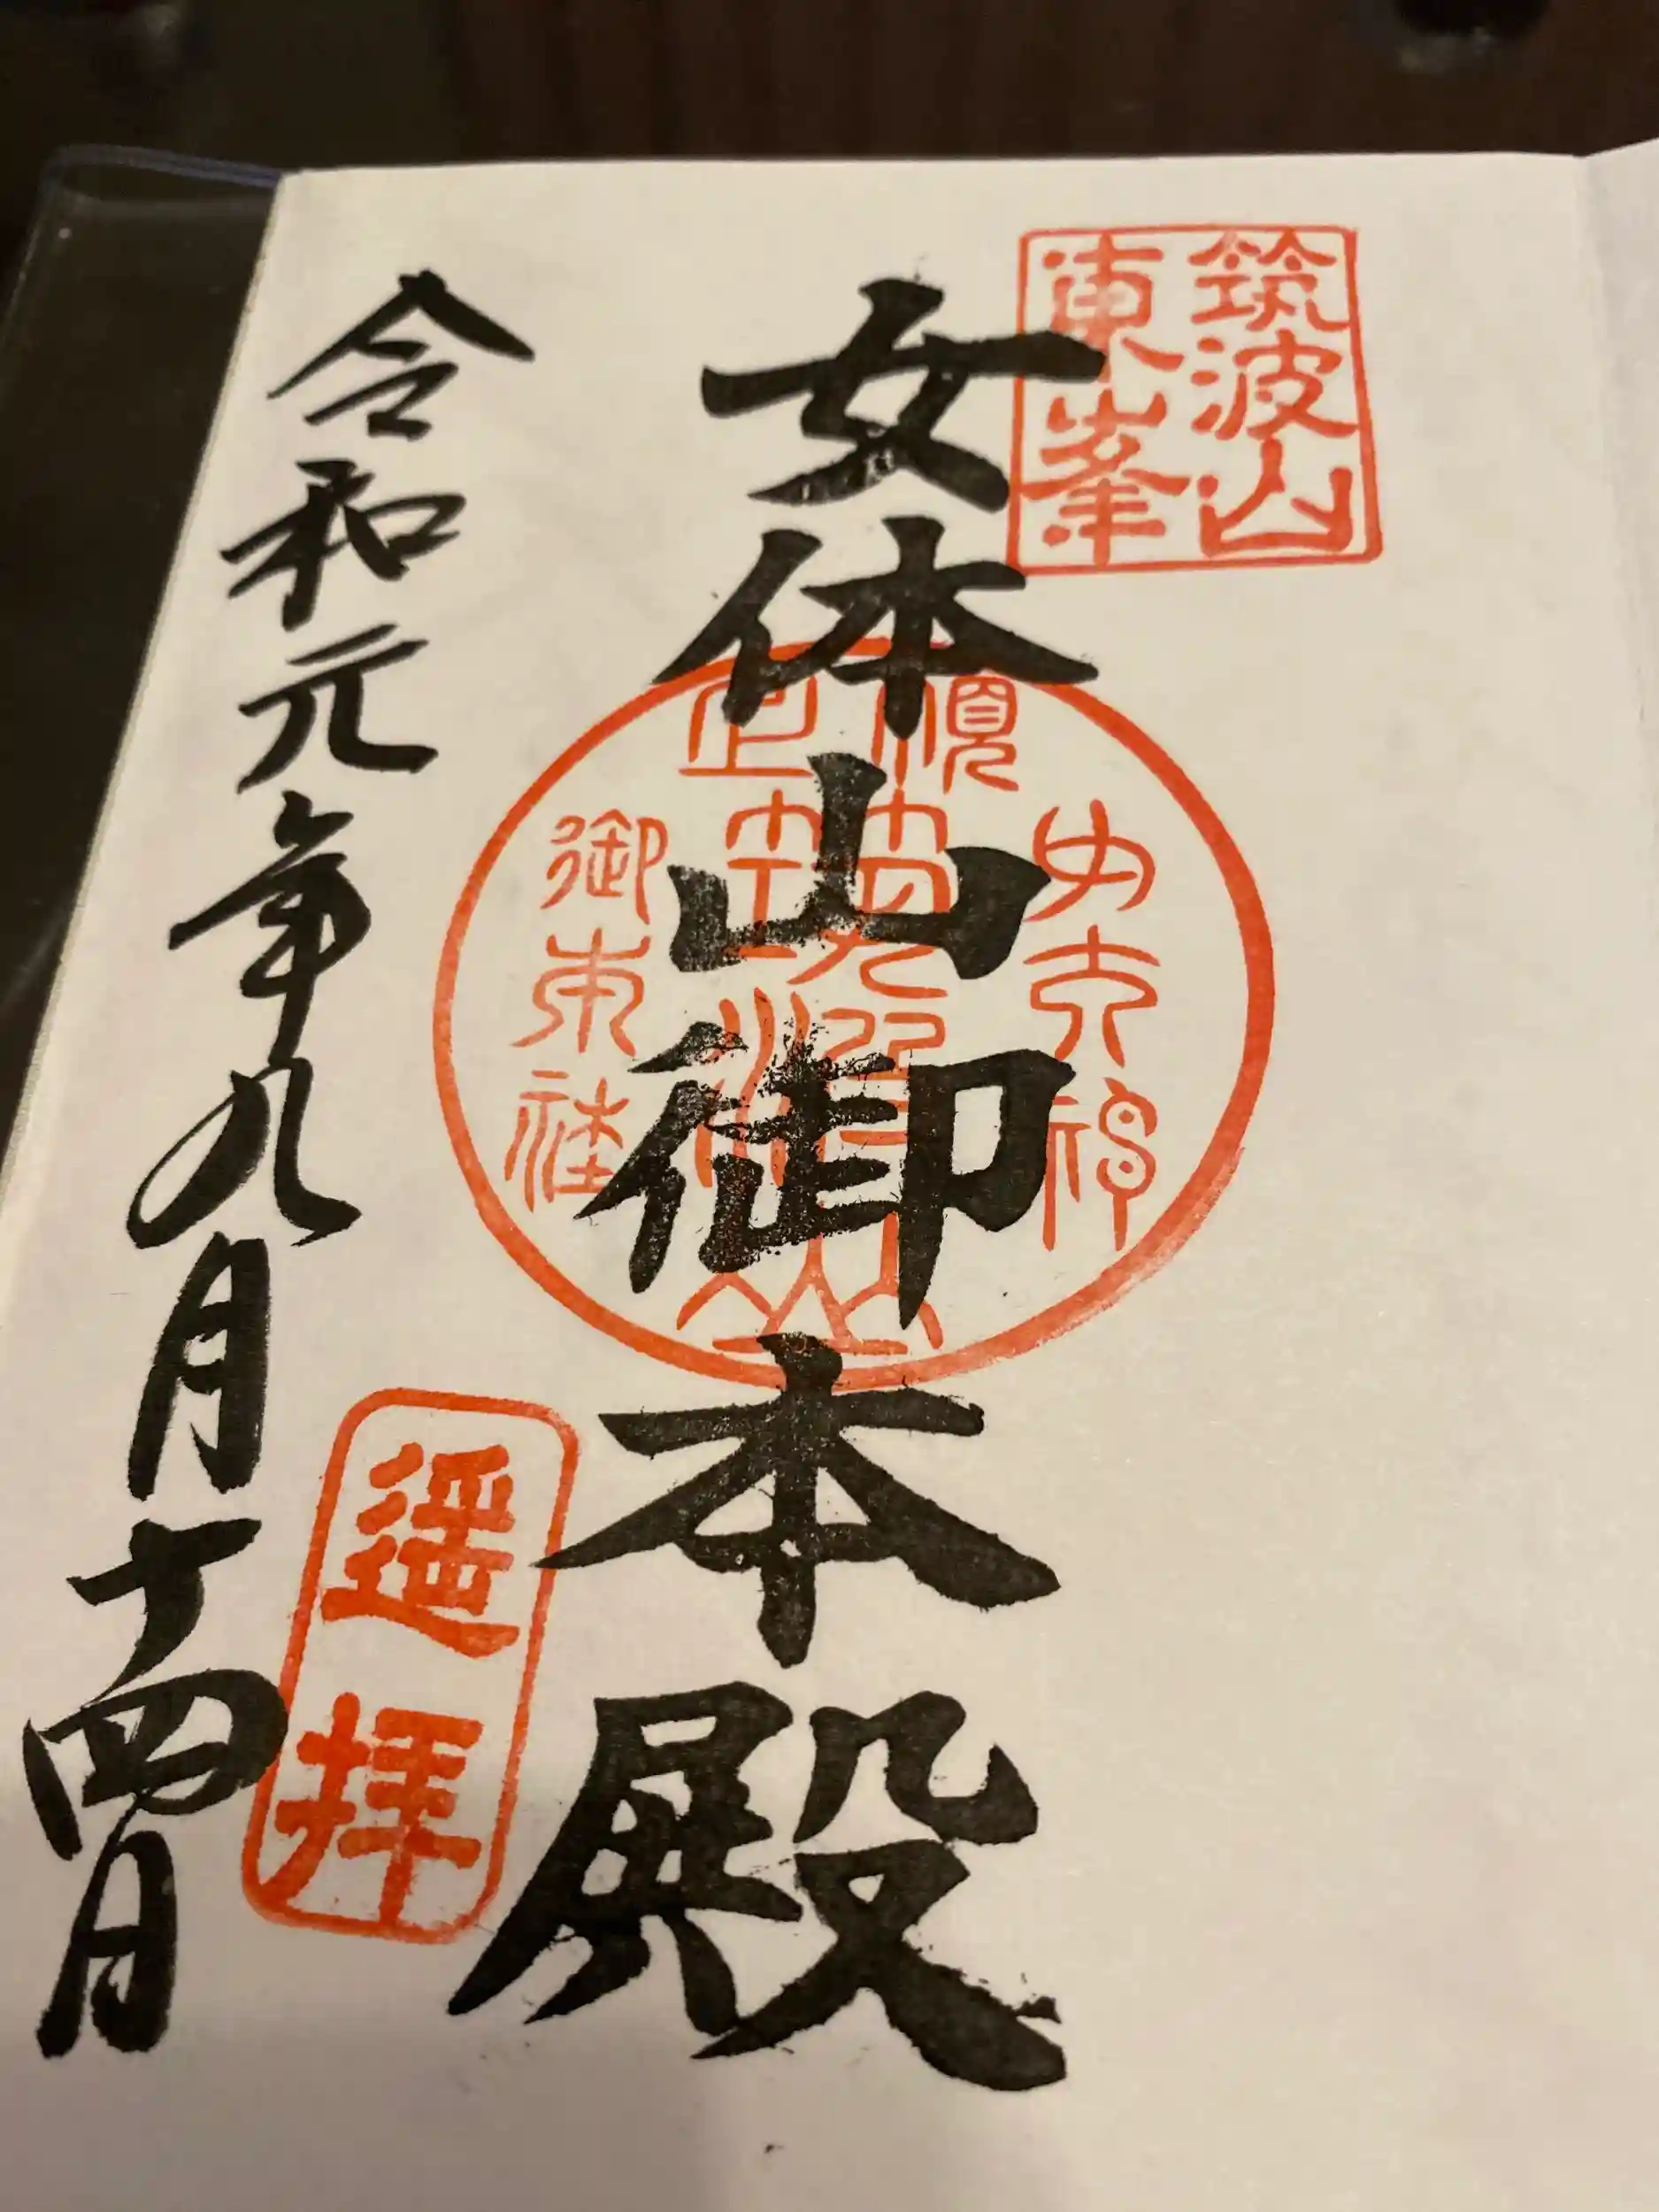 筑波山
東峯
女体山御本殿
遥拝
令和元年九月十四日